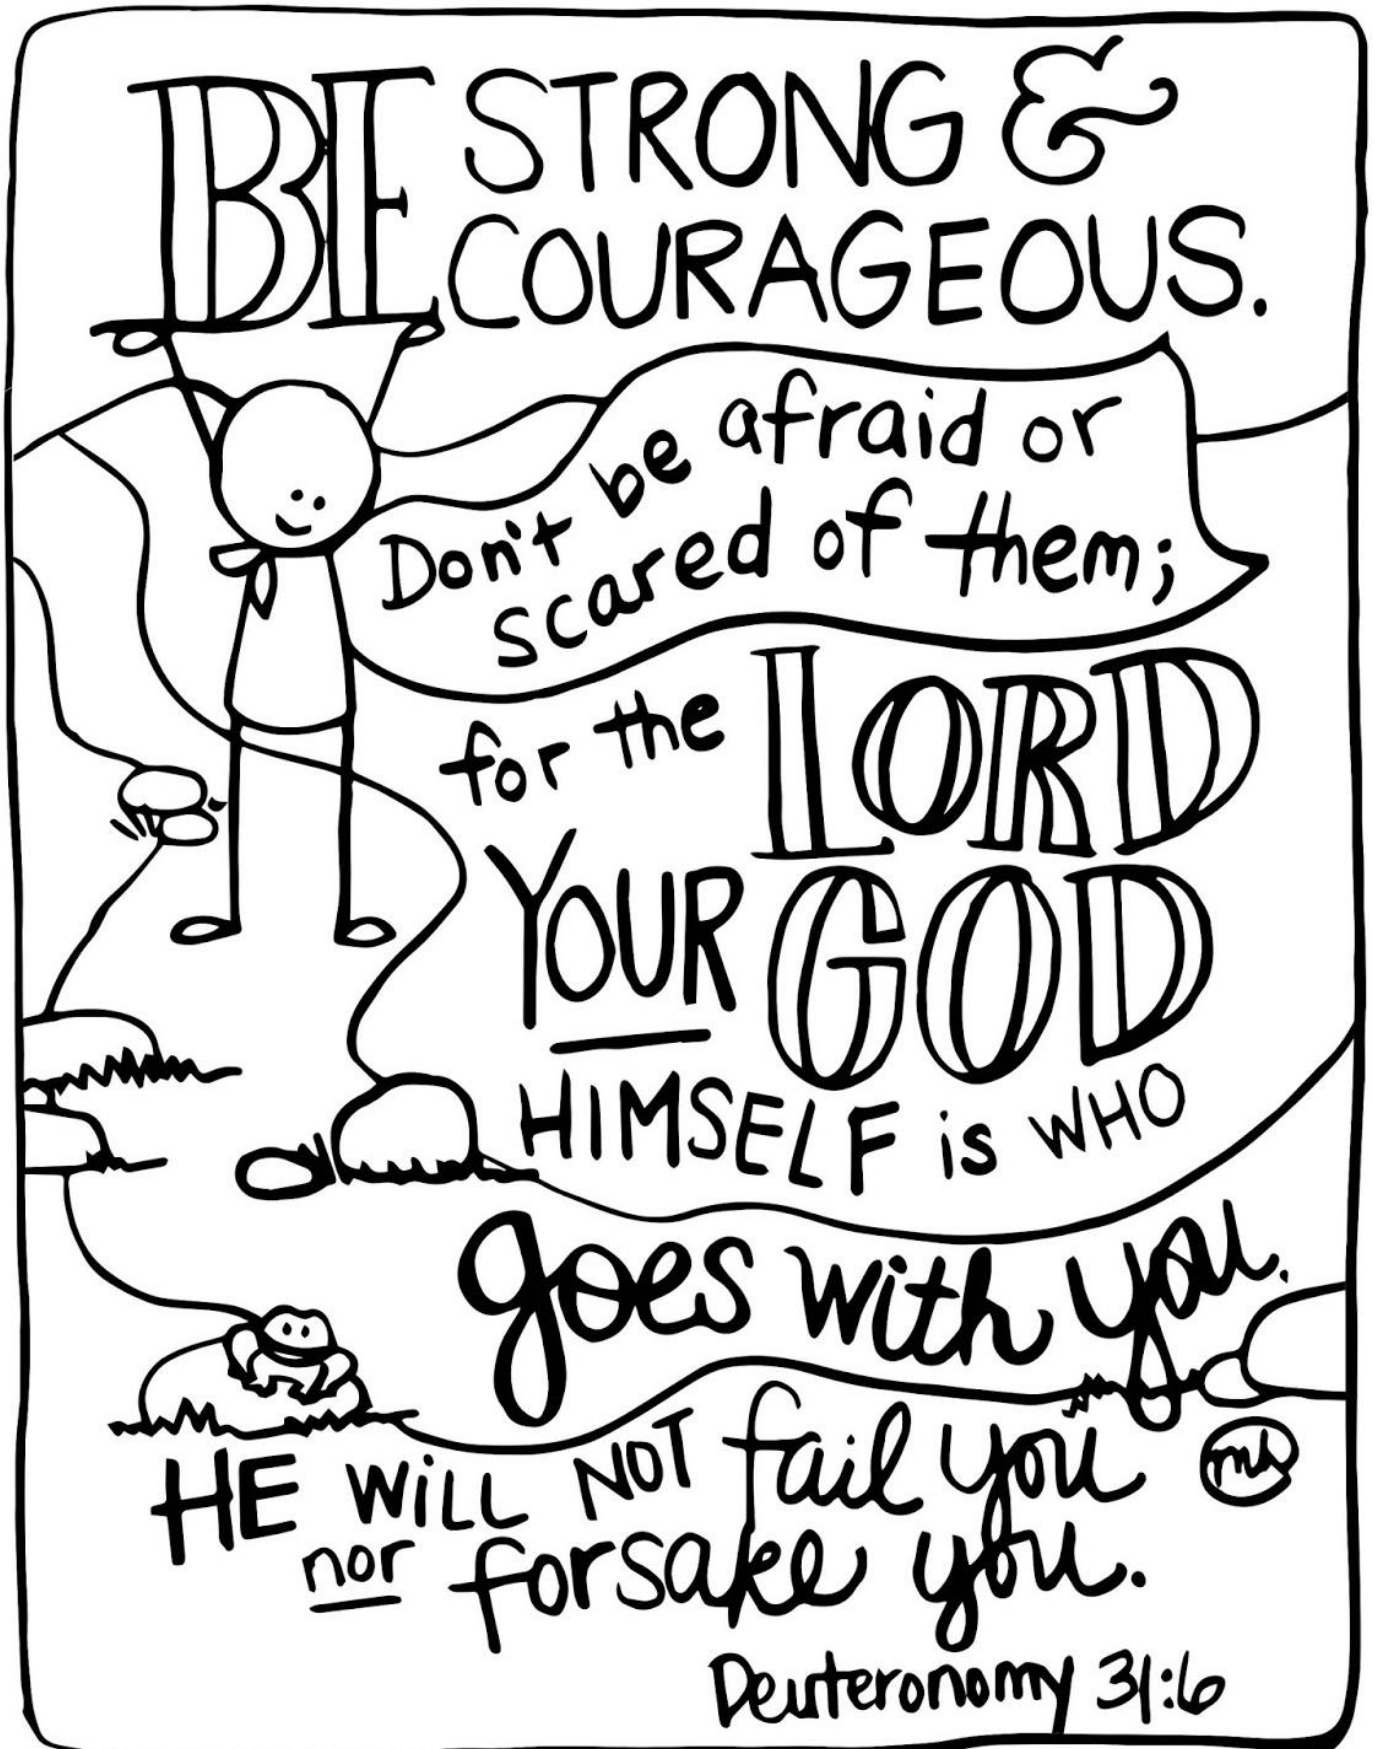 BE STRONG &
COURAGEOUS.
Don't be afraid or
scared of them;
for the LORD
YOUR GOD
HIMSELF is WHO
goes with you.
HE WiLL NOT fail you
nor forsake you.
Deuteronomy 31:6